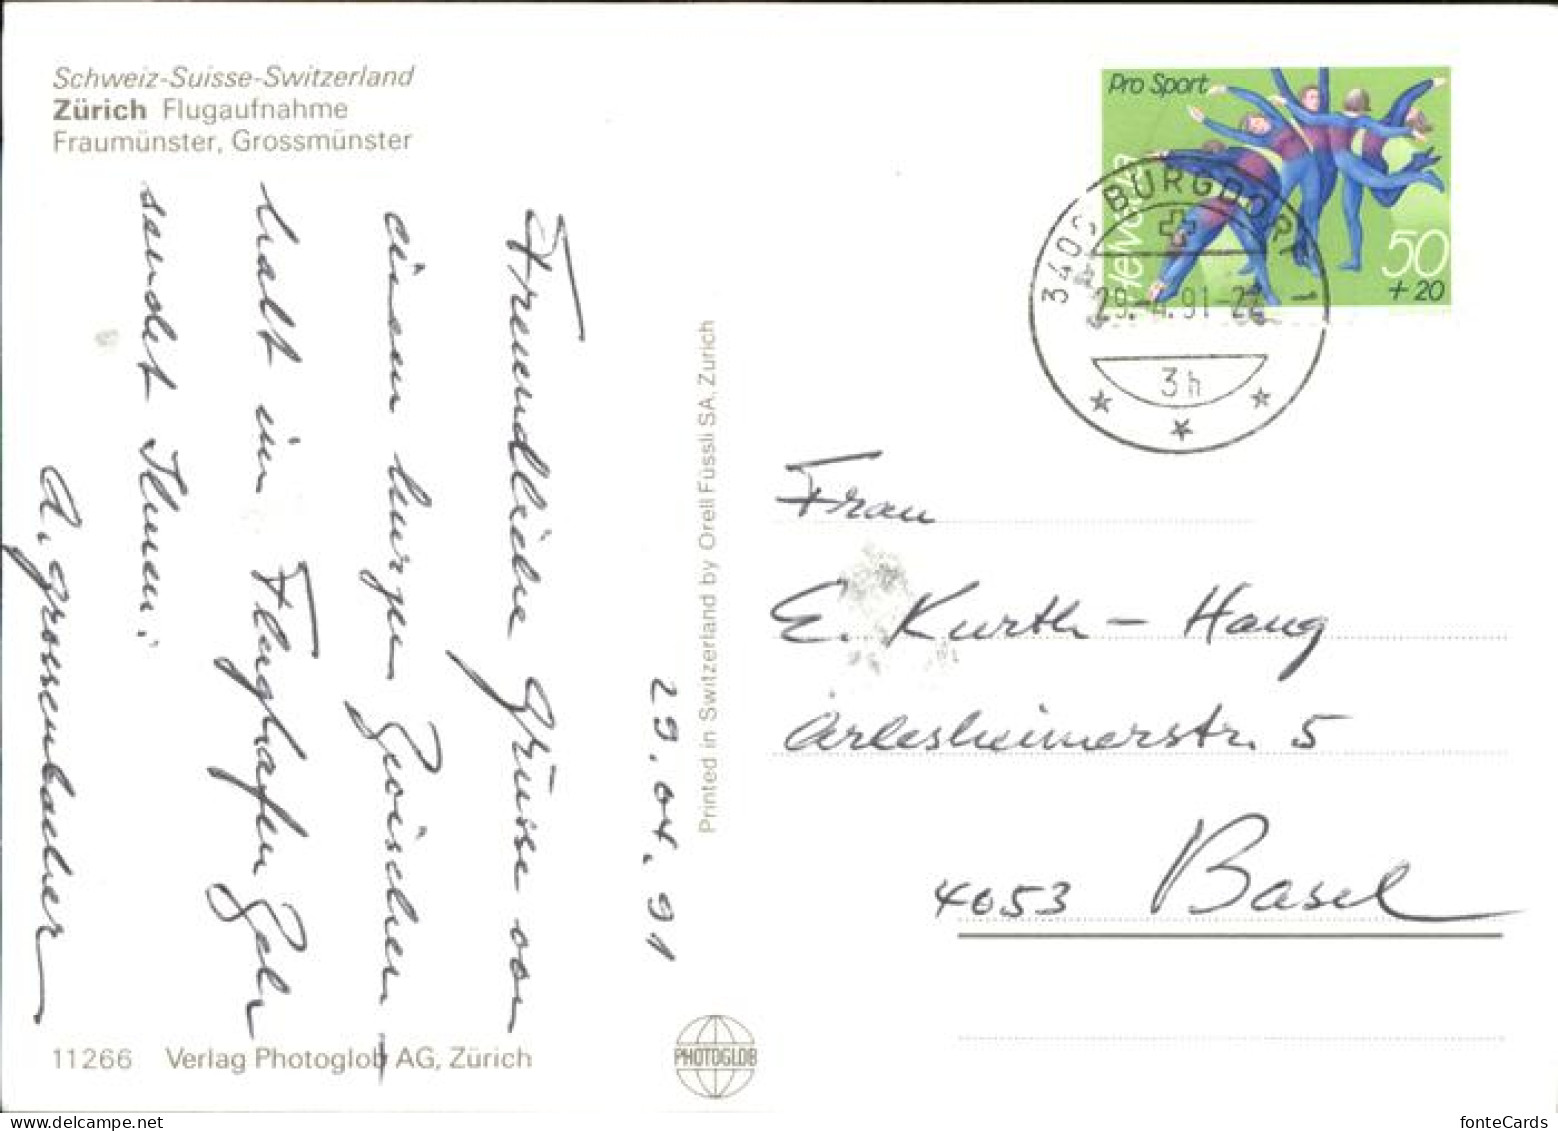 Schweiz-Suisse-Switzerland
Zürich Flugaufnahme
Fraumünster, Grossmünster
29.04.91
Freundliche Grüsse von
einem kurzen Zwischen-
halt im Flughafen
sendet Ihnen:
A. Grossenbacher
11266 Verlag Photoglob AG, Zürich
Printed in Switzerland by Orell Füssli SA, Zürich
PHOTOGLOB
Pro Sport
Helvetia
50
+ 20
3400 BURGDORF 1
29.-4.91-22
3h
Frau
E. Kurth - Haug
Arlesheimerstr. 5
4053 Basel
fonteCards